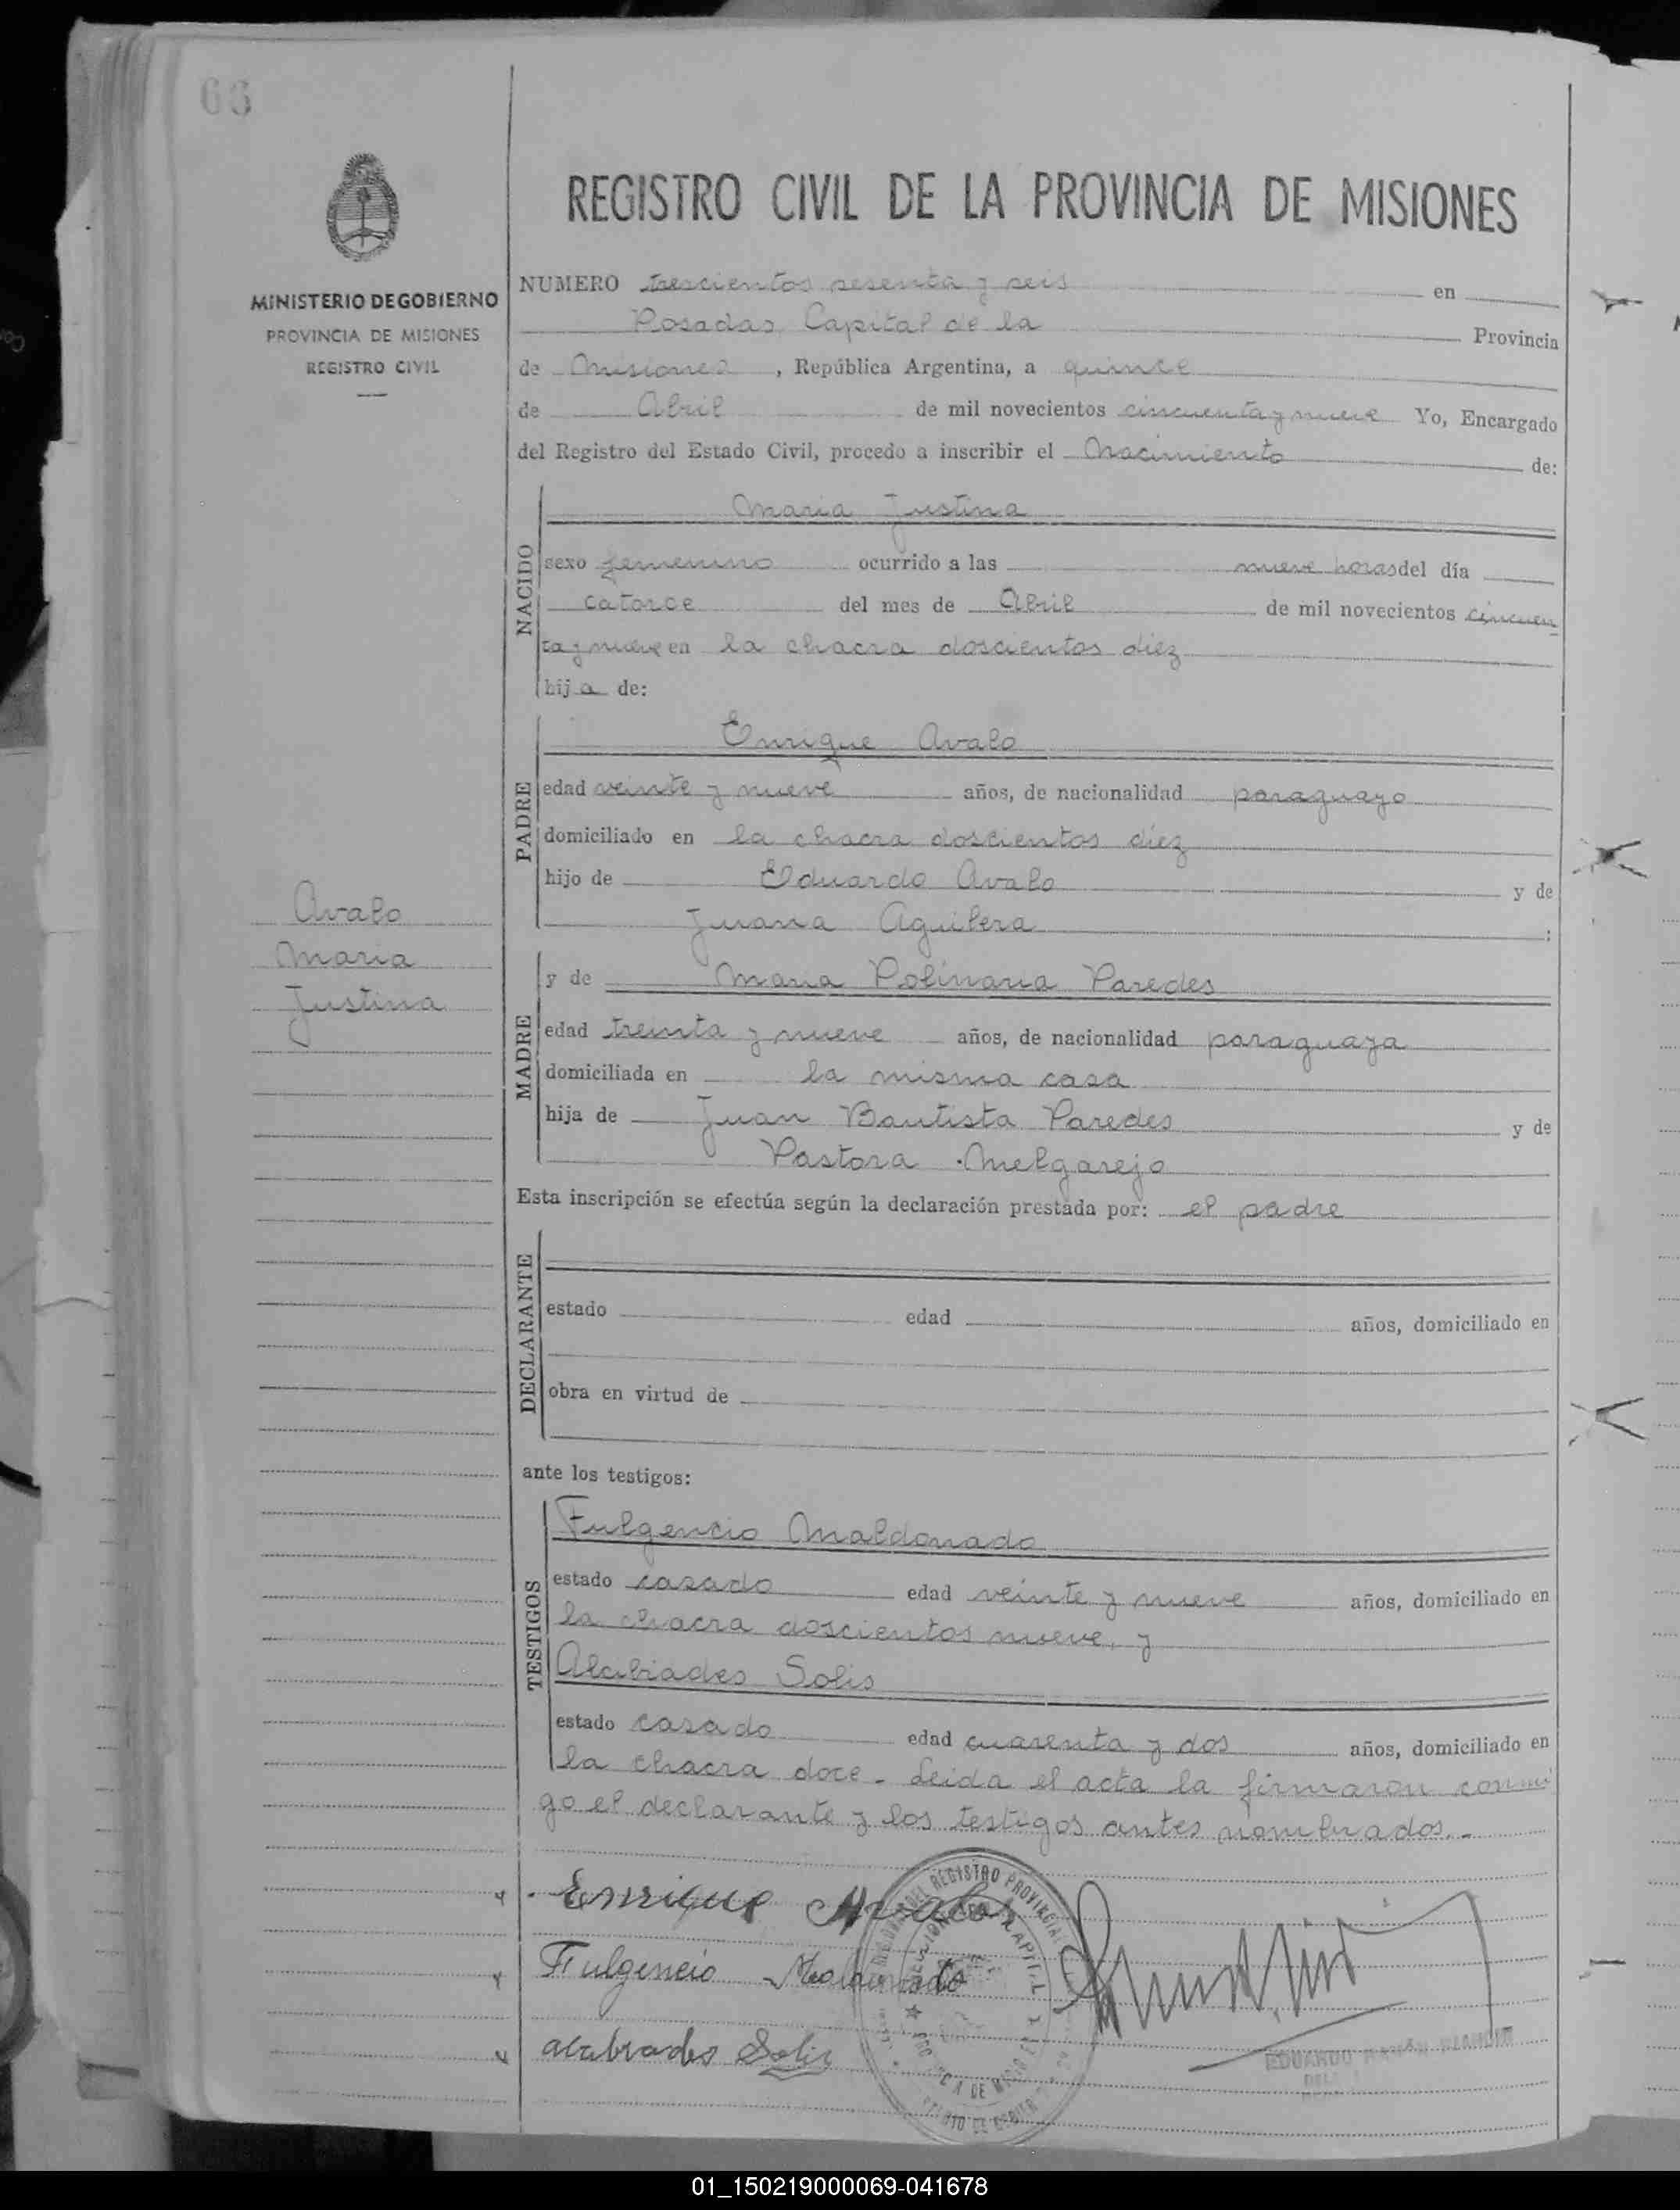 66
REGISTRO CIVIL DE LA PROVINCIA DE MISIONES
MINISTERIO DE GOBIERNO
PROVINCIA DE MISIONES
REGISTRO CIVIL
NUMERO trescientos sesenta y seis en
Posadas, Capital de la Provincia
de Misiones, República Argentina, a quince
de Abril de mil novecientos cincuenta y nueve Yo, Encargado
del Registro del Estado Civil, procedo a inscribir el Nacimiento de:
NACIDO
Maria Justina
sexo femenino ocurrido a las nueve horas del día
catorce del mes de Abril de mil novecientos cincuen
ta y nueve en la chacra doscientos diez
hija de:
PADRE
Enrique Avalo
edad veinte y nueve años, de nacionalidad paraguayo
domiciliado en la chacra doscientos diez
hijo de Eduardo Avalo y de
Juana Aguilera;
Avalo
Maria
Justina
MADRE
y de Maria Polinaria Paredes
edad treinta y nueve años, de nacionalidad paraguaya
domiciliada en la misma casa
hija de Juan Bautista Paredes y de
Pastora Melgarejo
Esta inscripción se efectúa según la declaración prestada por: el padre
DECLARANTE
estado edad años, domiciliado en
obra en virtud de
ante los testigos:
TESTIGOS
Fulgencio Maldonado
estado casado edad veinte y nueve años, domiciliado en
la chacra doscientos nueve, y
Alcibiades Solis
estado casado edad cuarenta y dos años, domiciliado en
la chacra doce. Leida el acta la firmaron conmi
go el declarante y los testigos antes nombrados.-
Enrique Avalos
Fulgencio Maldonado
Solis
REGISTRO PROVINCIAL
CAPITAL
EDUARDO RAMÓN
01_150219000069-041678